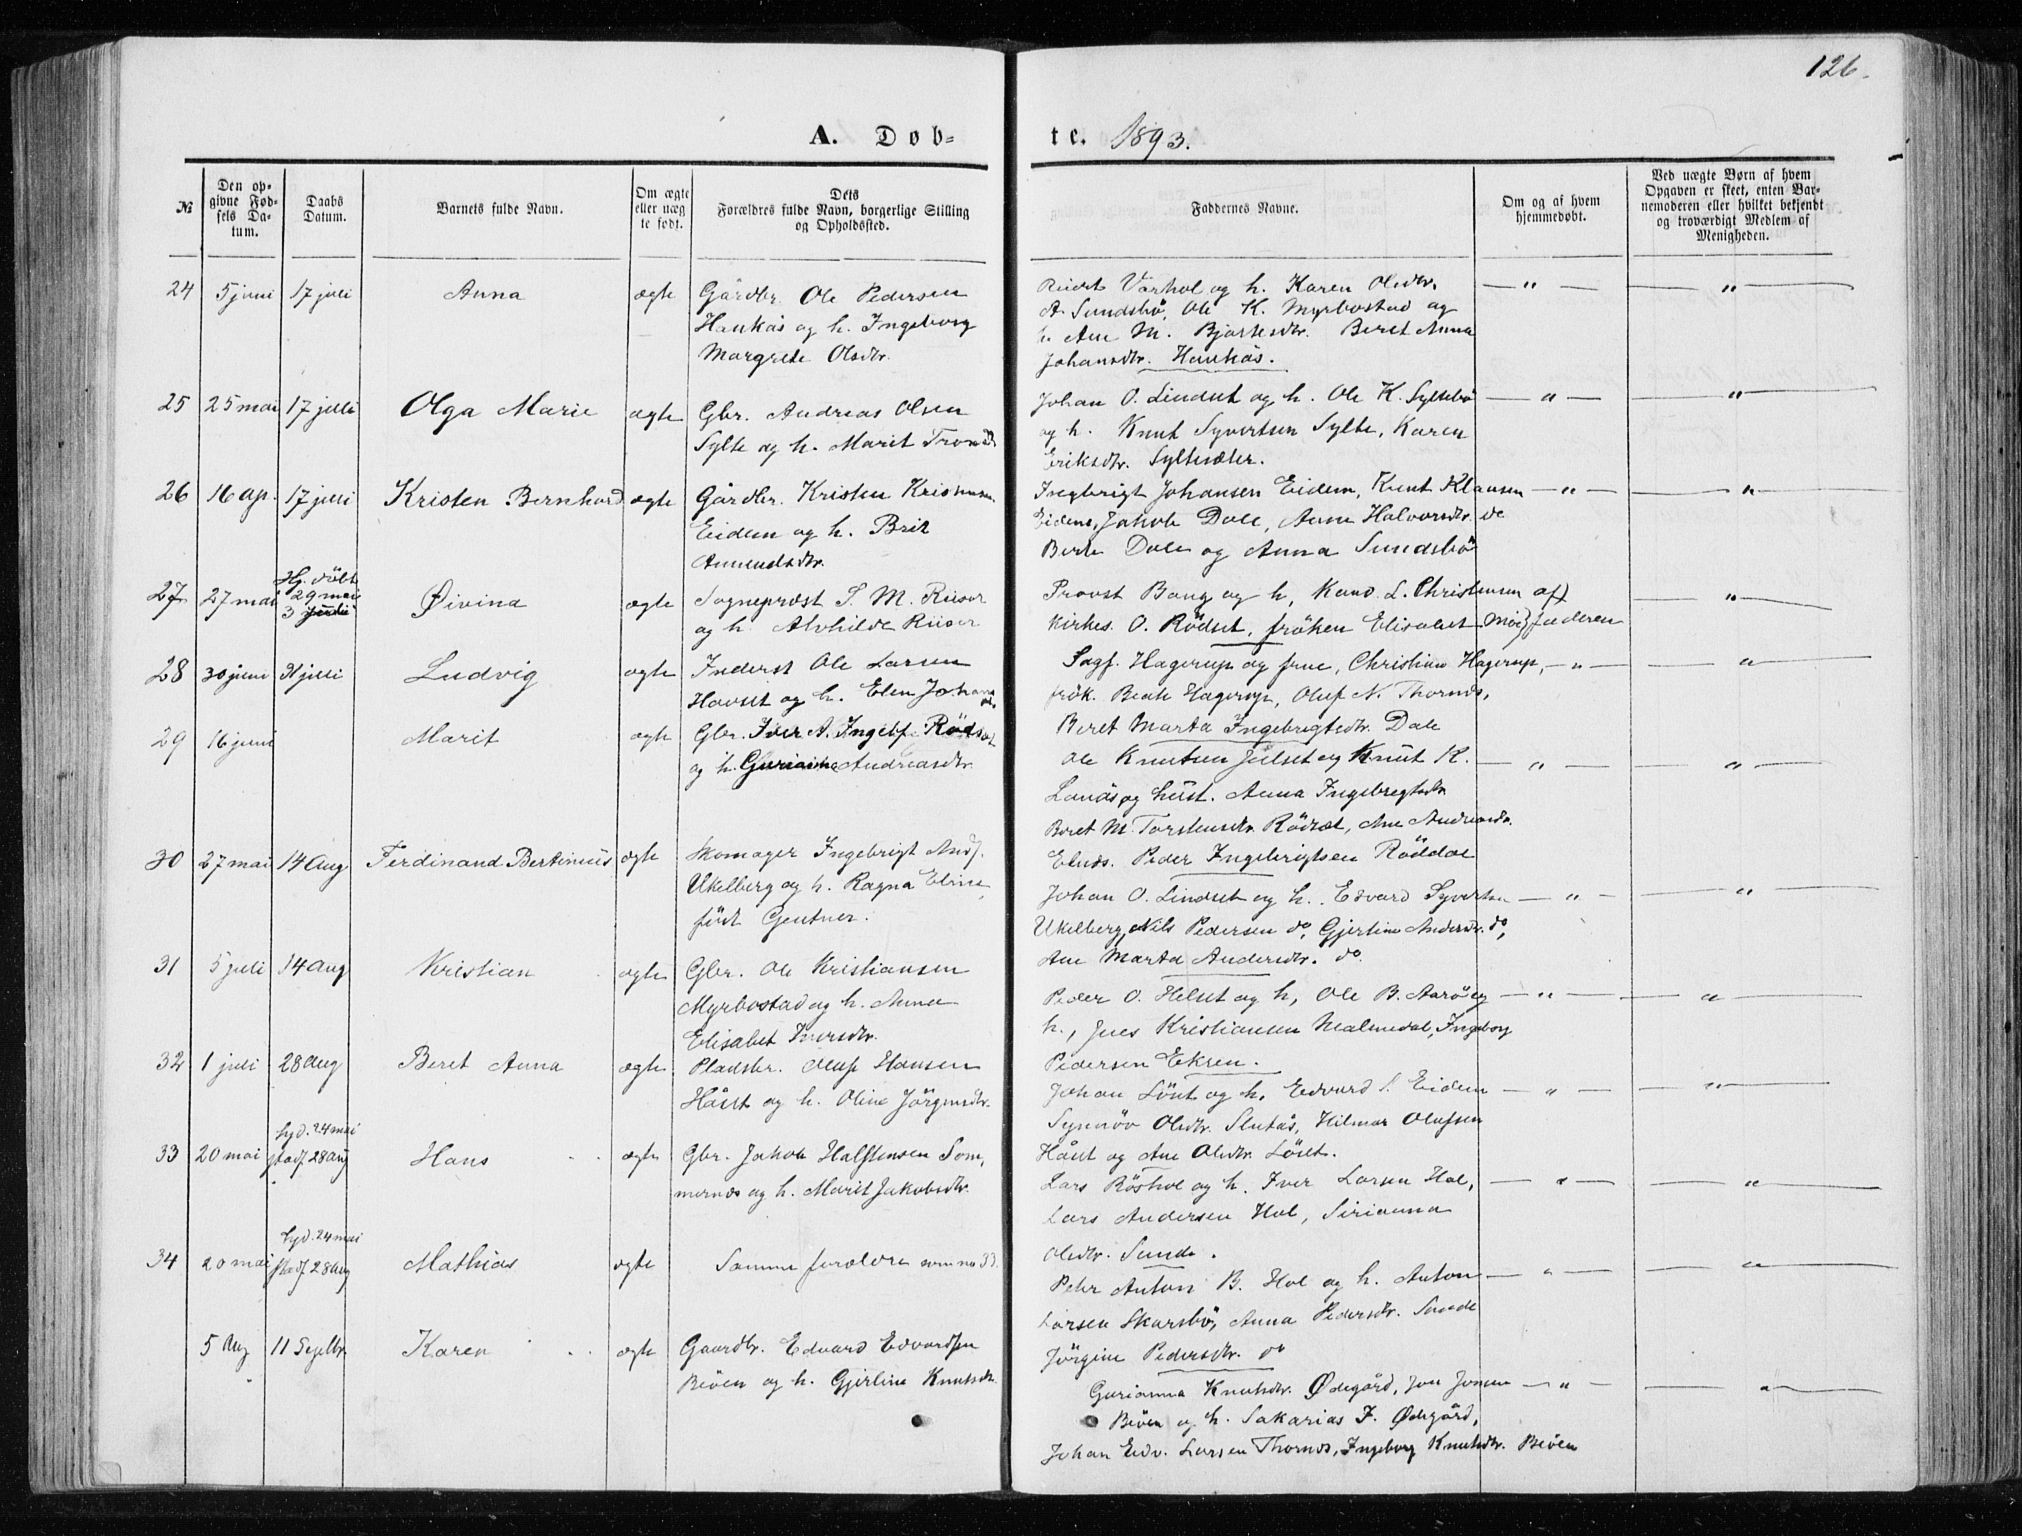 126.
A. Dob-
te. 1893.
№
Den opgivne Fødsels Datum.
Daabs Datum.
Barnets fulde Navn.
Om ægte eller nægte født.
Dets Forældres fulde Navn, borgerlige Stilling og Opholdssted.
Faddernes Navne.
Om og af hvem hjemmedøbt.
Ved uægte Børn af hvem Opgaven er skeet, enten Barnemoderen eller hvilket bekjendt og troværdigt Medlem af Menigheden.
24 5 juni 17 juli Anna ægte Gårdbr. Ole Pedersen
Haukås og h. Ingeborg
Margrete Olsdtr.
Varhol og h. Karen Olsdtr. — " — — " —
A. Sundsbö, Ole K. Myrbostad og
h. Ane M. Bjartesdtr. Beret Anna
Johansdtr. Haukås.
25 25 mai 17 juli Olga Marie ægte Gbr. Andreas Olsen
Sylte og h. Marit
Johan O. Lindset og h. Ole K. Syltebö — " — — " —
og h. Knut Syvertsen Sylte, Karen
Eriksdtr. Syltesæter.
26 16 ap. 17 juli Kristen Bernhard ægte Gårdbr. Kristen
Eidem og h. Brit
Amundsdtr.
Ingebrigt Johansen Eidem, Knut Klausen — " — — " —
Eidem, Jakob Dale, Anne Halvorsdtr. do
Berte Dale og Anna Sundsbö
27 27 mai Hj. döbt
29 mai
3 Øivind ægte Sogneprest S. M. Riiser
og h. Alvhilde Riiser
Provst Bang og h, Kand. L. Christensen af — " —
Kirkes. O. Rödset, fröken Elisabet Faderen
28 30 juni 31 juli Ludvig ægte Inderst Ole Larsen
Havset og h. Elen
Sagf. Hagerup og frue, Christian Hagerup, — " — — " —
frök. Beate Hagerup, Oluf N. Thornes,
Beret Marta Ingebrigtsdtr. Dale
29 16 juni Marit ægte Gbr. Iver A. Rödset
og h. Andreasdtr.
Ole Knutsen Julset og Knut K. — " — — " —
og hust. Anna Ingebregtsdtr
Beret M. Torstensdtr Rödset, Ane Andreasdr.
Elnes. Peder Ingebrigtsen Röddal
30 27 mai 14 Aug Ferdinand Bertinius ægte Skomager Ingebrigt
Ukelberg og h. Ragna Eline,
född Gentner.
Johan O. Lindset og h. Edvard Syvertsen — " — — " —
Ukelberg, Nils Pedersen do, Gjertine Andersdr. do,
Ane Marta Andersdtr. do.
31 5 juli 14 Aug Kristian ægte Gbr. Ole Kristiansen
Myrbostad og h. Anne
Elisabet Iversdtr.
Peder O. Helset og h, Ole B. Aaröe og — " — — " —
h., Jens Kristiansen Malmedal, Ingeborg
Pedersen Eksen.
32 1 juli 28 Aug Beret Anna ægte Pladsbr. Oluf Hansen
Håset og h. Oline Jörgensdtr.
Johan Löset og h, Edvard S. Eidem — " — — " —
Synnöv Olsdtr. Slutås, Hilmar Olufsen
Håset og Ane Olsdtr. Löset.
33 20 mai hjd. 24 mai
stadf 28 Aug Hans ægte Gbr. Jakob Halstensen Som,
mernes og h. Marit Jakobsdtr.
Lars Röshol og h. Iver Larsen Hol, — " — — " —
Lars Andersen Hol, Sirianna
Olsdtr. Sunde.
34 20 mai hjd. 24 mai
stadf 28 Aug Mathias ægte Samme foreldre som no 33.
Peder Anton B. Hol og h. Anton — " — — " —
Larsen Skarsbö, Anna Pedersdtr. Sunde
Jörgine Pedersdtr. do
5 Aug 11 Septbr. Karen ægte Gaardbr. Edvard Edvardsen
Beöen og h. Gjertine Knutsdtr.
Gurianna Knutsdtr. Ødegård, Jon Jonsen — " — — " —
Beöen og h. Sakarias J. Ødegård,
Johan Edv. Larsen Thornes, Ingeborg Knutsdtr. Beöen